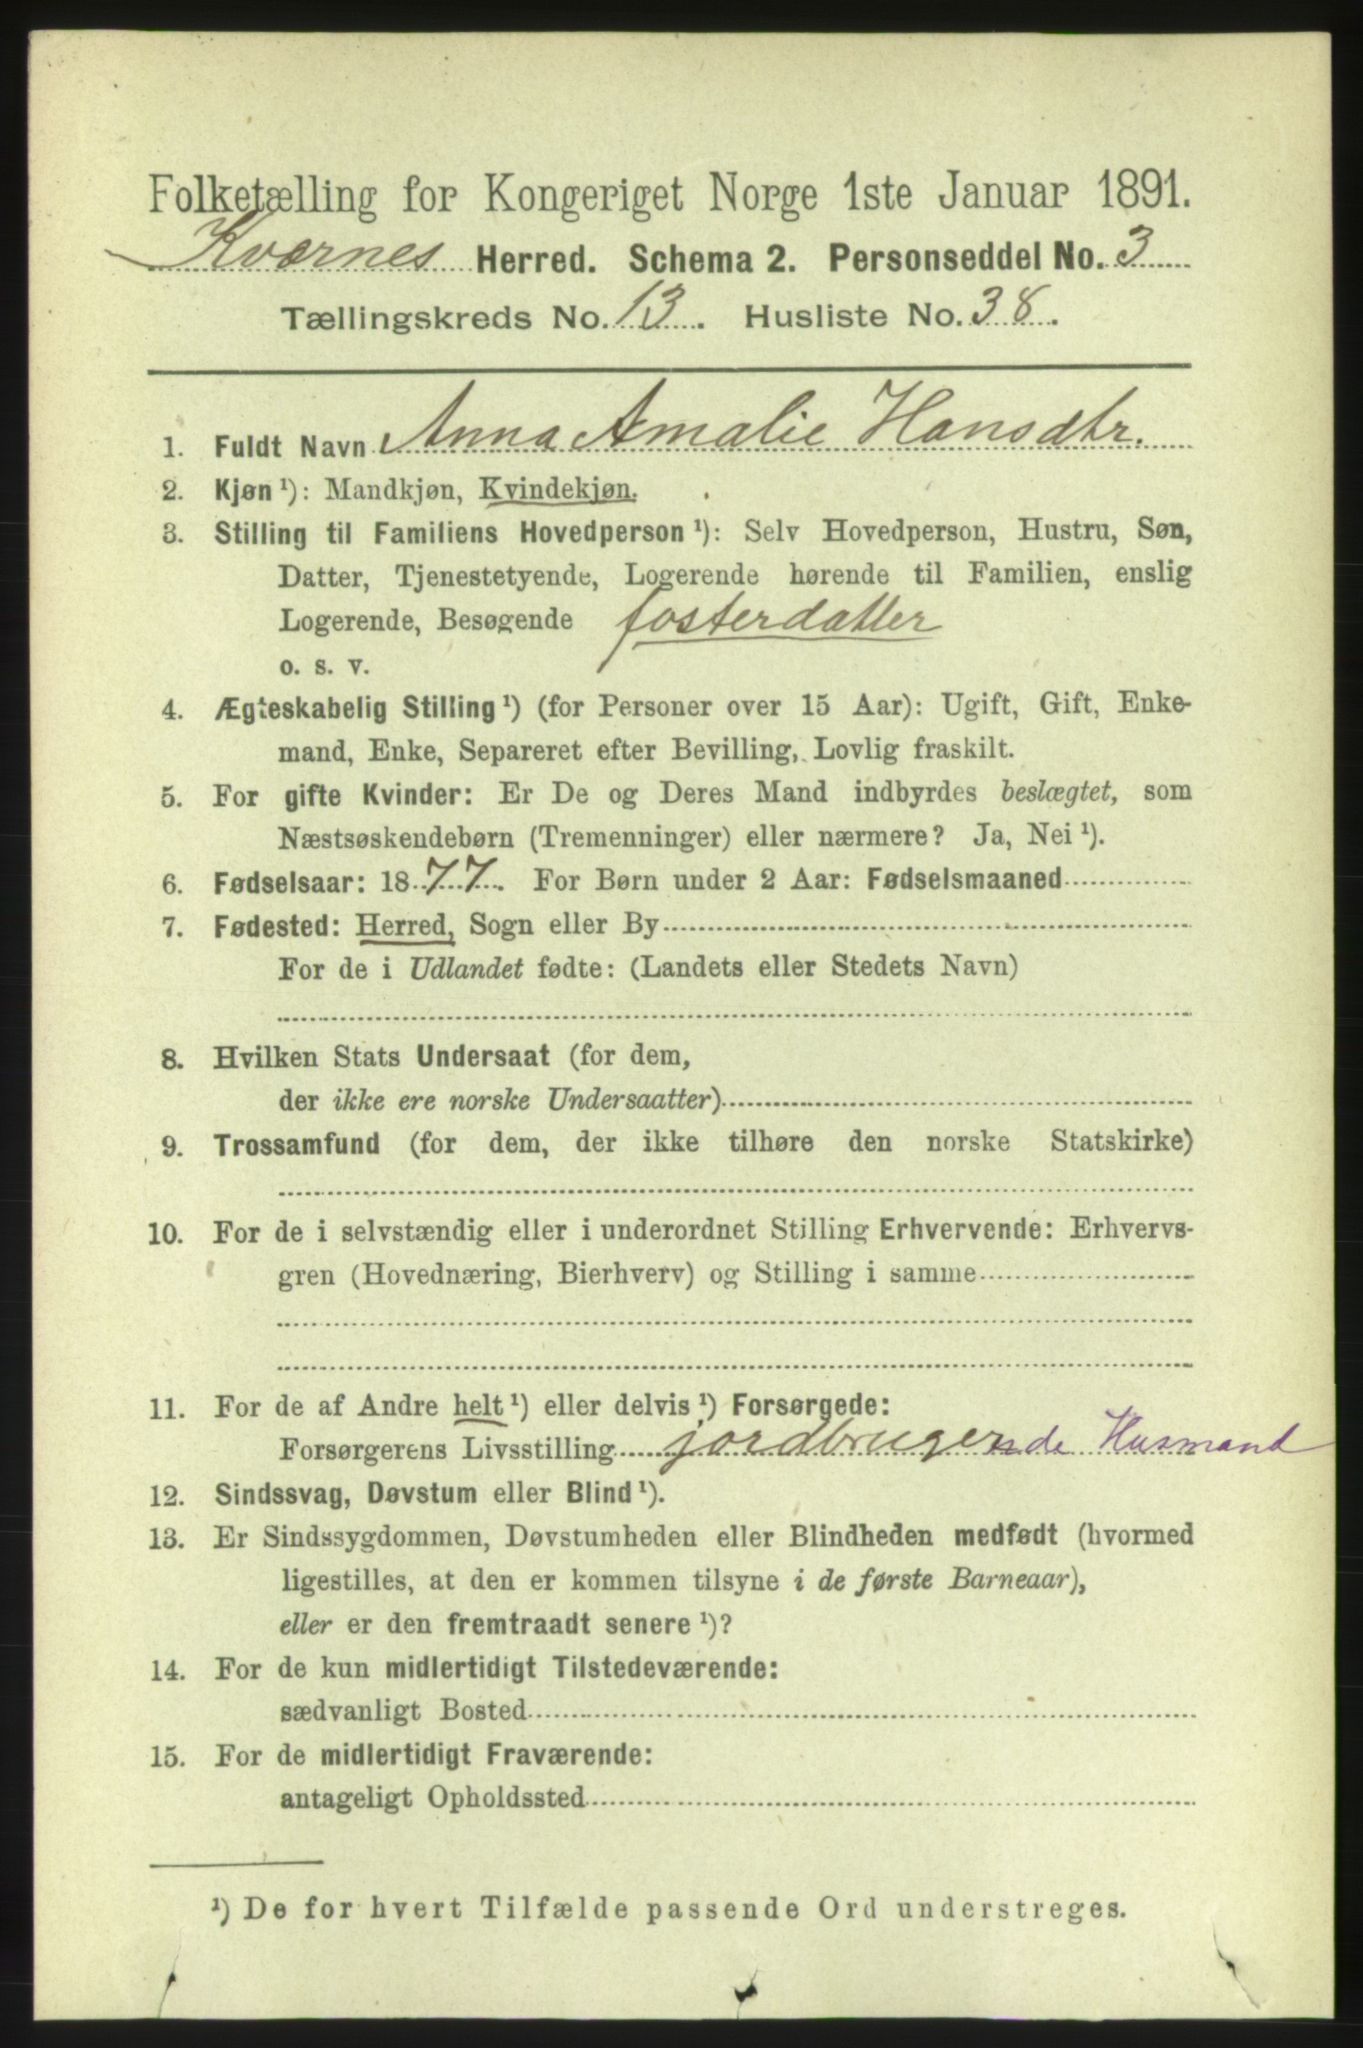 Folketælling for Kongeriget Norge 1ste Januar 1891.
Kværnes Herred. Schema 2. Personseddel No. 3
Tællingskreds No. 13. Husliste No. 38.
1. Fuldt Navn Anna Amalie Hansdtr.
2. Kjøn ¹): Mandkjøn, Kvindekjøn.
3. Stilling til Familiens Hovedperson ¹): Selv Hovedperson, Hustru, Søn,
Datter, Tjenestetyende, Logerende hørende til Familien, enslig
Logerende, Besøgende fosterdatter
o. s. v.
4. Ægteskabelig Stilling ¹) (for Personer over 15 Aar): Ugift, Gift, Enke-
mand, Enke, Separeret efter Bevilling, Lovlig fraskilt.
5. For gifte Kvinder: Er De og Deres Mand indbyrdes beslægtet, som
Næstsøskendebørn (Tremenninger) eller nærmere? Ja, Nei ¹).
6. Fødselsaar: 1877. For Børn under 2 Aar: Fødselsmaaned
7. Fødested: Herred, Sogn eller By
For de i Udlandet fødte: (Landets eller Stedets Navn)
8. Hvilken Stats Undersaat (for dem,
der ikke ere norske Undersaatter)
9. Trossamfund (for dem, der ikke tilhøre den norske Statskirke)
10. For de i selvstændig eller i underordnet Stilling Erhvervende: Erhvervs-
gren (Hovednæring, Bierhverv) og Stilling i samme
11. For de af Andre helt ¹) eller delvis ¹) Forsørgede:
Forsørgerens Livsstilling jordbrugende Husmand
12. Sindssvag, Døvstum eller Blind ¹).
13. Er Sindssygdommen, Døvstumheden eller Blindheden medfødt (hvormed
ligestilles, at den er kommen tilsyne i de første Barneaar),
eller er den fremtraadt senere ¹)?
14. For de kun midlertidigt Tilstedeværende:
sædvanligt Bosted
15. For de midlertidigt Fraværende:
antageligt Opholdssted
¹) De for hvert Tilfælde passende Ord understreges.